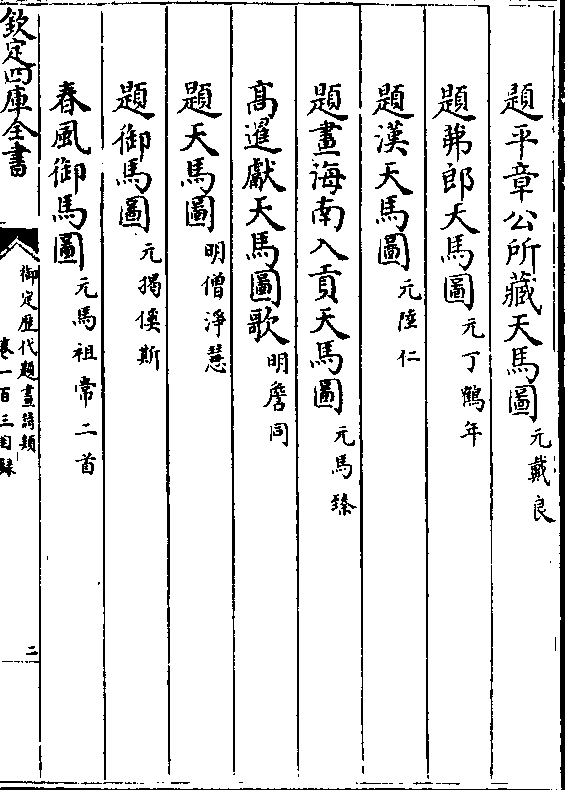 題平章公所藏天馬圖元戴良
題弗郎天馬圖元丁鶴年
題漢天馬圖元陸仁
題畫海南入貢天馬圖元馬臻
高暹獻天馬圖歌明詹同
題天馬圖明僧淨慧
題御馬圖元揭傒斯
春風御馬圖元馬祖常二首
欽定四庫全書
御定歷代題畫詩類
卷一百三目錄
二